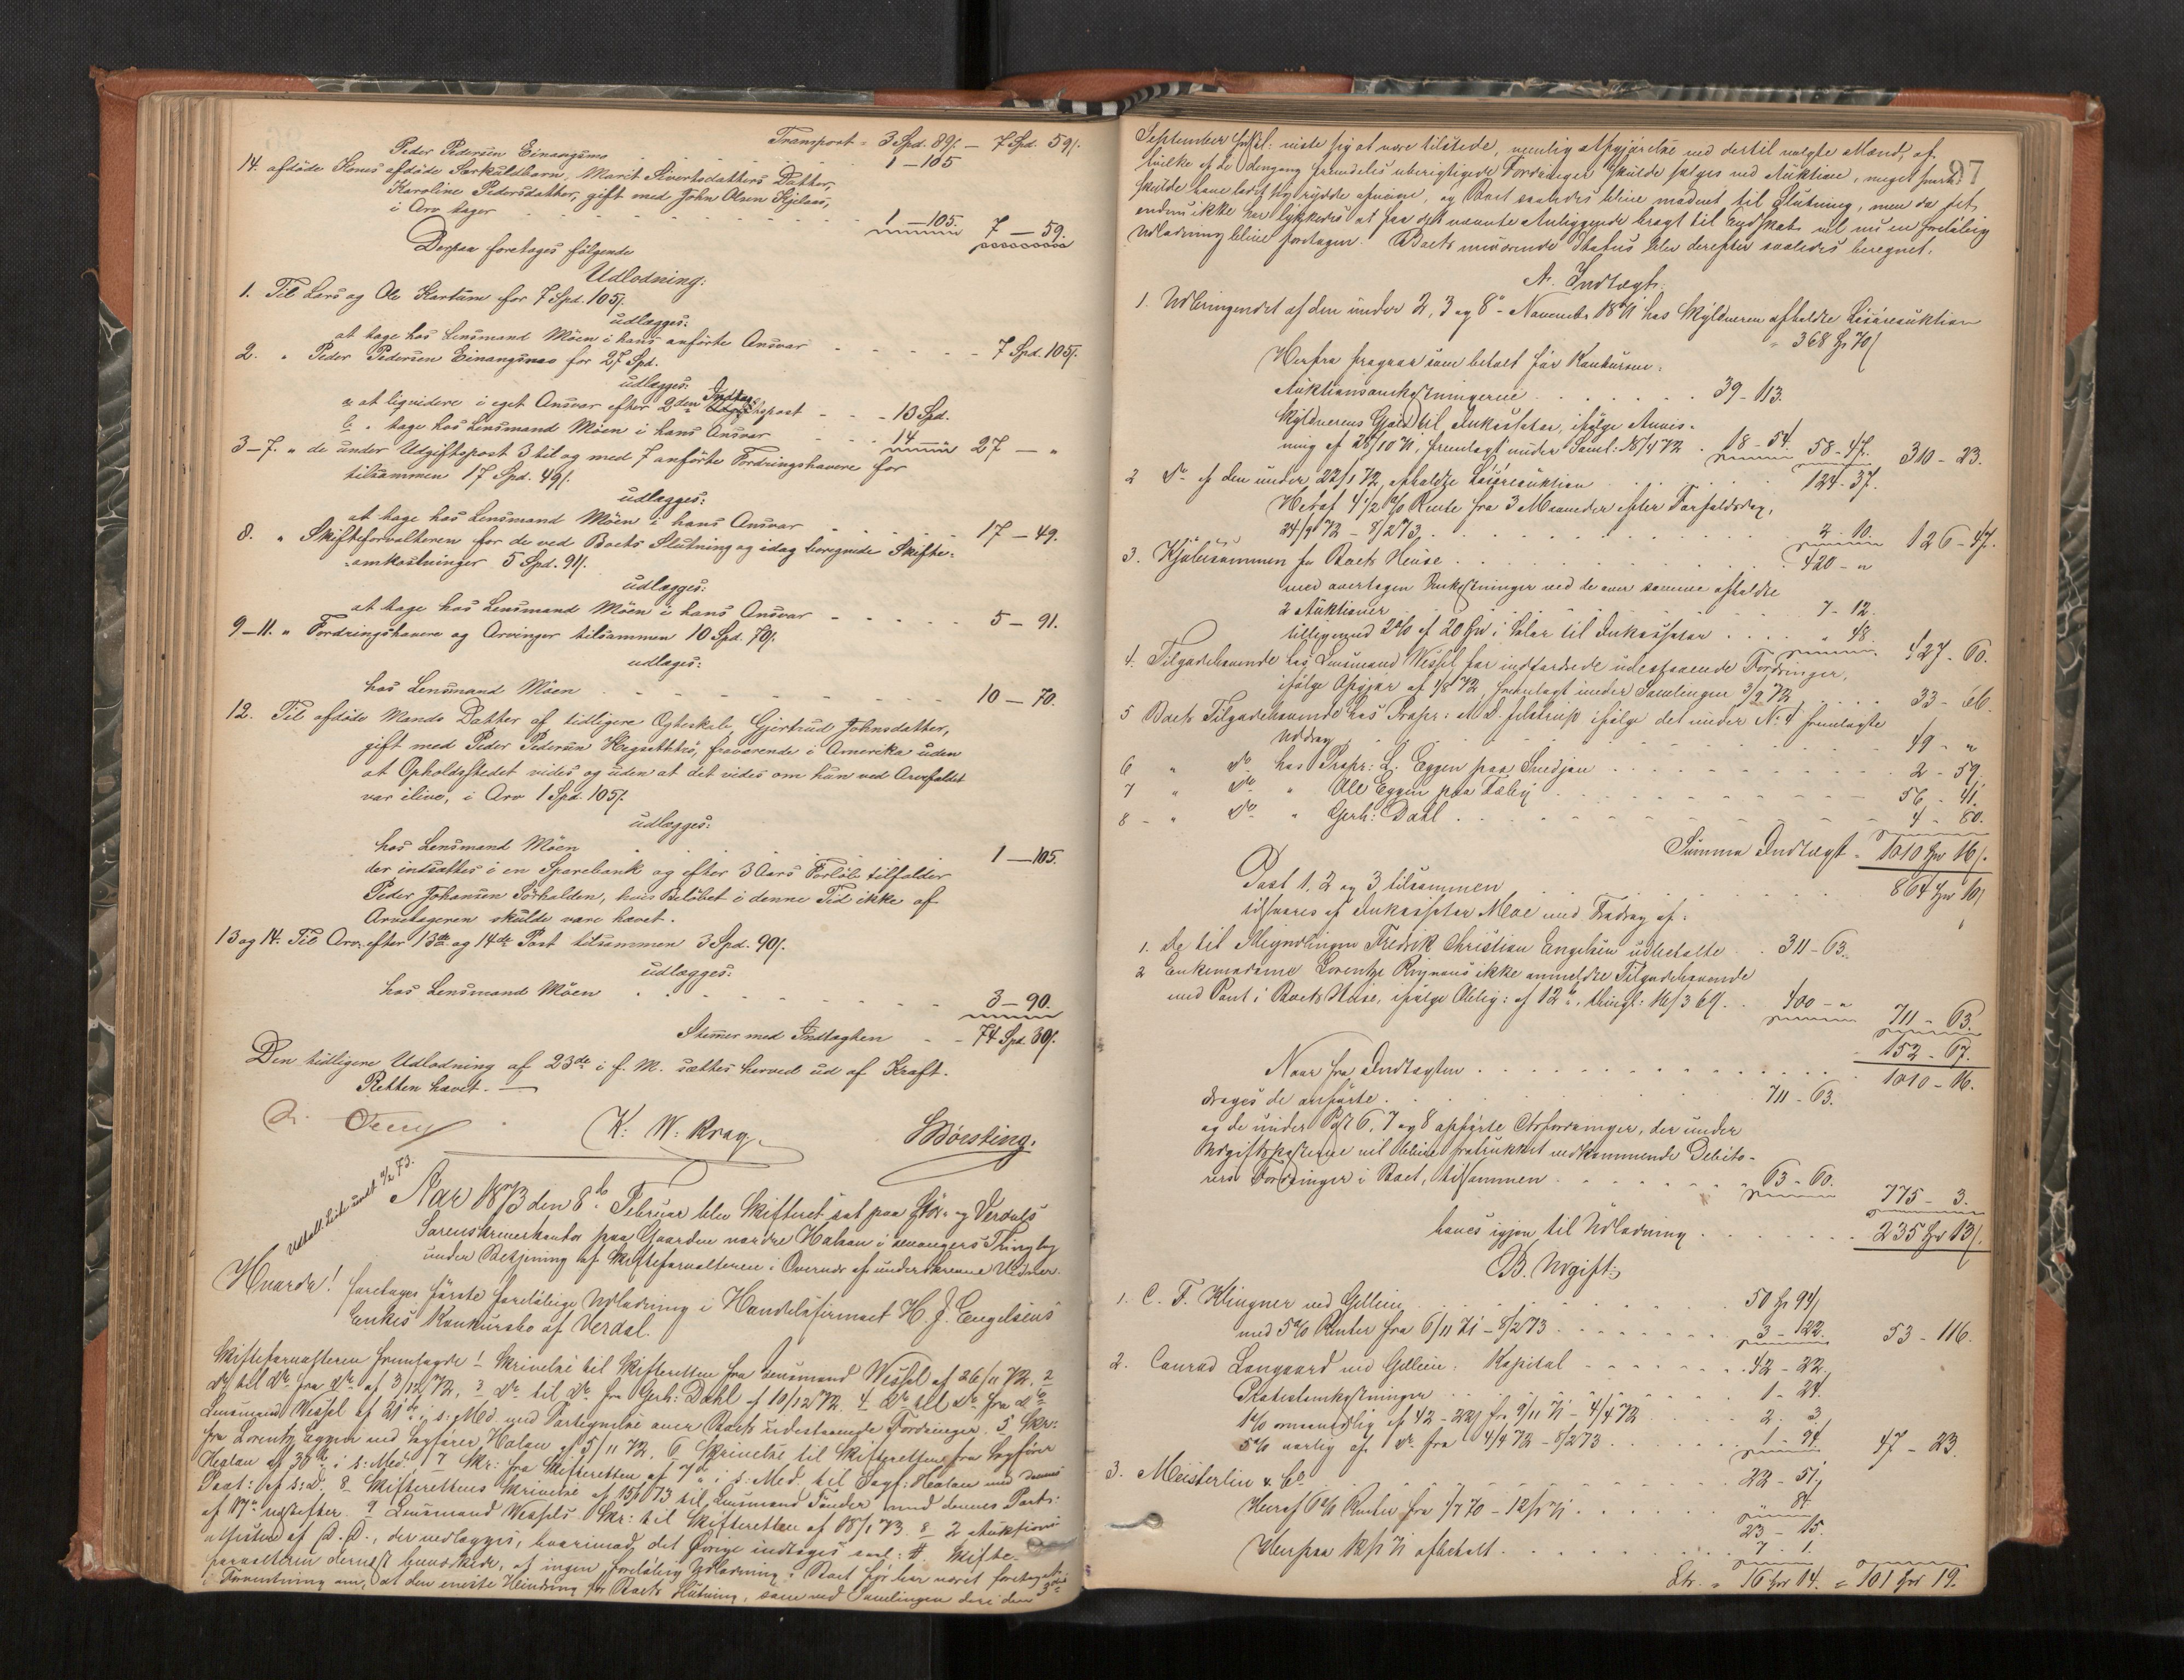 Transport = 3 Spd. 89 ß. — 7 Spd. 59 ß.
Peder Pedersen Einangsmo . . . 1 — 105
14. afdöde Kones afdöde Særkuldbarn, Marit Sivertsdatters Datter,
Karoline Pedersdatter, gift med John Olsen Kjelaas,
i Arv tager . . . 1 — 105. 7 — 59.
Derpaa foretages følgende
Udlodning:
1. Til Lars og Ole Kartum for 7 Spd. 105 ß.
udlægges:
at tage hos Lensmand Möen i hans anförte Ansvar . . . 7 Spd. 105 ß.
2. " Peder Pedersen Einangsmo for 27 Spd.
udlægges:
a, at liquidere i eget Ansvar efter 2den Indtægtspost - - - 13 Spd.
b, " tage hos Lensmand Möen i hans Ansvar . . . 14 27 — "
3—7. " de under Udgiftspost 3 til og med 7 anförte Fordringshavere for
tilsammen 17 Spd. 49 ß.
udlægges:
at tage hos Lensmand Möen i hans Ansvar . . . 17 — 49.
8. " Skifteforvalteren for de ved Boets Slutning og idag beregnede Skifte-
omkostninger 5 Spd. 91 ß.
udlægges:
at tage hos Lensmand Möen i hans Ansvar . . . 5 — 91.
9—11. " Fordringshavere og Arvinger tilsammen 10 Spd. 70 ß.
udlæges:
hos Lensmand Möen . . . 10 — 70.
12. Til afdöde Mands Datter af tidligere Ægteskab, Gjertrud Johnsdatter,
gift med Peder Pedersen, fraværende i Amerika uden
at Opholdsstedet vides og uden at det vides om hun ved Arvefaldet
var ilive, i Arv 1 Spd. 105 ß.
udlægges:
hos Lensmand Möen . . . 1 — 105.
der indsættes i en Sparebank og efter 3 Aars Forløb tilfalder
Peder Johansen Sörhalden, hvis Beløbet i denne Tid ikke af
Arvetageren skulde være hævet.
13 og 14. Til Arv. efter 13de og 14de Post tilsammen 3 Spd. 90 ß.
udlægges:
hos Lensmand Möen . . . 3 — 90.
Stemmer med Indtægten - - 74 Spd. 30 ß.
Den tidligere Udlodning af 23de i f. M. sættes herved ud af Kraft.
Retten hævet. —
K. W. Krag.
Aar 1873 den 8de Februar blev Skifteret sat paa Stör- og Verdals
Sorenskriverkontor paa Gaarden nordre Halsan i Levangers Thinglag
under Betjening af Skifteforvalteren i Overvær af underskrevne Vidner.
Hvorda! foretoges förste foreløbige Udlodning i Handelsfirmaet H. J. Engelsens
Enkes Konkursbo af Verdal.
Skifteforvalteren fremlagde 1 Skrivelse til Skifteretten fra Lensmand Wessel af 26/11 72, 2
do til do fra do af 3/12 72, 3 do til do fra Gerh: Dahl af 10/12 72. 4 do til do fra do
Lensmand Wessel af 21de i s: Md med Fortegnelse over Boets udestaaende Fordringer. 5 Skr:
fra Lorentz Eggen ved Sagfører Halan af 5/11 72. 6 Skrivelse til Skifteretten fra Sagfører
Healan af 30te i s: Md. 7 Skr: fra Skifteretten af 7de i s: Md. til Sagf: Healan med dennes
Paat: af s: D. 8 Skifterettens Skrivelse af 15/1 73 til Lensmand Tönder med dennes Paat:
af 17de næstefter 9 Lensmand Wessels Skr: til Skifteretten af 18/1 73 & 2 Auktions
der vedlægges, hvorimod det Övrige indtages Skifte-
forvalteren dernæst bemærkede, at ingen foreløbig Udlodning i Boet før har været foretaget
i Formodning om, at den eneste Hindring for Boets Slutning, som ved Samlingen den 3die
97
September viste sig at være tilstede, nemlig Opgjørelse ved dertil valgte Mænd, af
hvilke af de dengang fremdeles uberigtigede Fordringer skulde sælges ved Auktion, meget snart
skulde have ladet sig rydde afveien, og Boet saaledes blive modent til Slutning, men da det
endnu ikke har lykkedes at faa det nævnte Anliggende bragt til Endskab, vil nu en foreløbig
Udlodning blive foretagen. Boets nuværende Status blev derefter saaledes beregnet.
A. Indtægt.
1. Udbringendet af den under 2, 3 og 8de November 1871 hos Skyldneren afholdte Løsøreauktion
= 368 Spd 70 ß
Herfra fragaar som betalt før Konkursen:
Auktionsomkostningerne . . . 39 - 113.
Skyldnerens Gjæld til Inkassator, ifølge Anvis-
ning af 28/10 71, fremlagt under Saml: 18/4 72 . 18 - 54. 58 - 47. 310 - 23.
2 do af den under 22/1 72, afholdte Løsøreauktion . . . 124 - 37.
Heraf 4 1/2 % Rente fra 3 Maaneder efter Forfaldsdag,
24/9 72 - 8/2 73 . . . 2 - 10. 126 - 47.
3. Kjøbesummen for Boets Huse . . . 420 - "
med overtagen Omkostninger ved de over samme afholdte
2 Auktioner . . . 7 - 12.
tilligemed 2 % af 20 Spd i Salær til Inkassator . . . " 48. 427 - 60.
4. Tilgodehavende hos Lensmand Wessel for inddrevne udestaaende Fordringer,
ifølge Opgjør af 1/8 72, fremlagt under Samlingen 3/9 72 . . . 33 - 66.
5 Boets Tilgodehavende hos Propr: M. D. Jelstrup ifølge det under No. 4 fremlagte
Uddrag . . . 49 - "
6 " do hos Propr: L. Eggen paa Smedjan . . . 2 - 59.
7 " do " Ole Eggen paa Fæby . . . 56 - 41.
8 - " do " Gerh: Dahl . . . 4 - 80.
Summa Indtægt = 1010 Spd 16 ß.
Post 1, 2 og 3, tilsammen . . . 864 Spd 10 ß
tilsvares af Inkassator Moe med Fradrag af:
1. de til Myndlingen Fredrik Christian Engelsen udbetalte . . 311 - 63.
2 Enkemadame Lorentze Ringnæs ikke anmeldte Tilgodehavende
med Pant i Boets Huse, ifølge Oblig: af 12te, thingl: 16/3 69. . . 400 - " 711 - 63.
152 - 67.
Naar fra Indtægten . . . 1010 - 16.
drages de anførte . . . 711 - 63.
og de under Post 6, 7 og 8 opførte Activfordringer, der under
Udgiftsposterne vil blive fratrukket vedkommende Debito-
rers Fordringer i Boet, tilsammen . . . 63 - 60. 775 - 3.
haves igjen til Udlodning . . . 235 Spd 13 ß.
B. Udgift:
1. C. F. Klingner ved Gellein . . . 50 Spd 94 ß
med 5 % Renter fra 6/11 71 - 8/2 73 . . . 3 - 122. 53 - 116.
2. Conrad Langaard ved Gellein: Kapital . . . 42 - 22.
Protestomkostninger . . . 1 - 24.
1 % maanedlig af 42 - 22 ß fra 9/11 71 - 4/4 72 . . . 2 - 3.
5 % aarlig af do fra 4/4 72 - 8/2 73 . . . 1 - 94. 47 - 23.
3. Meisterlin & Co . . . 22 - 51.
Heraf 6 % Renter fra 1/7 70 - 12/1 71 . . . " 84.
23 - 15.
Herpaa 12/1 71 afbetalt . . . 7 - 1.
Ltr. = 16 Spd 14. = 101 Spd 19.